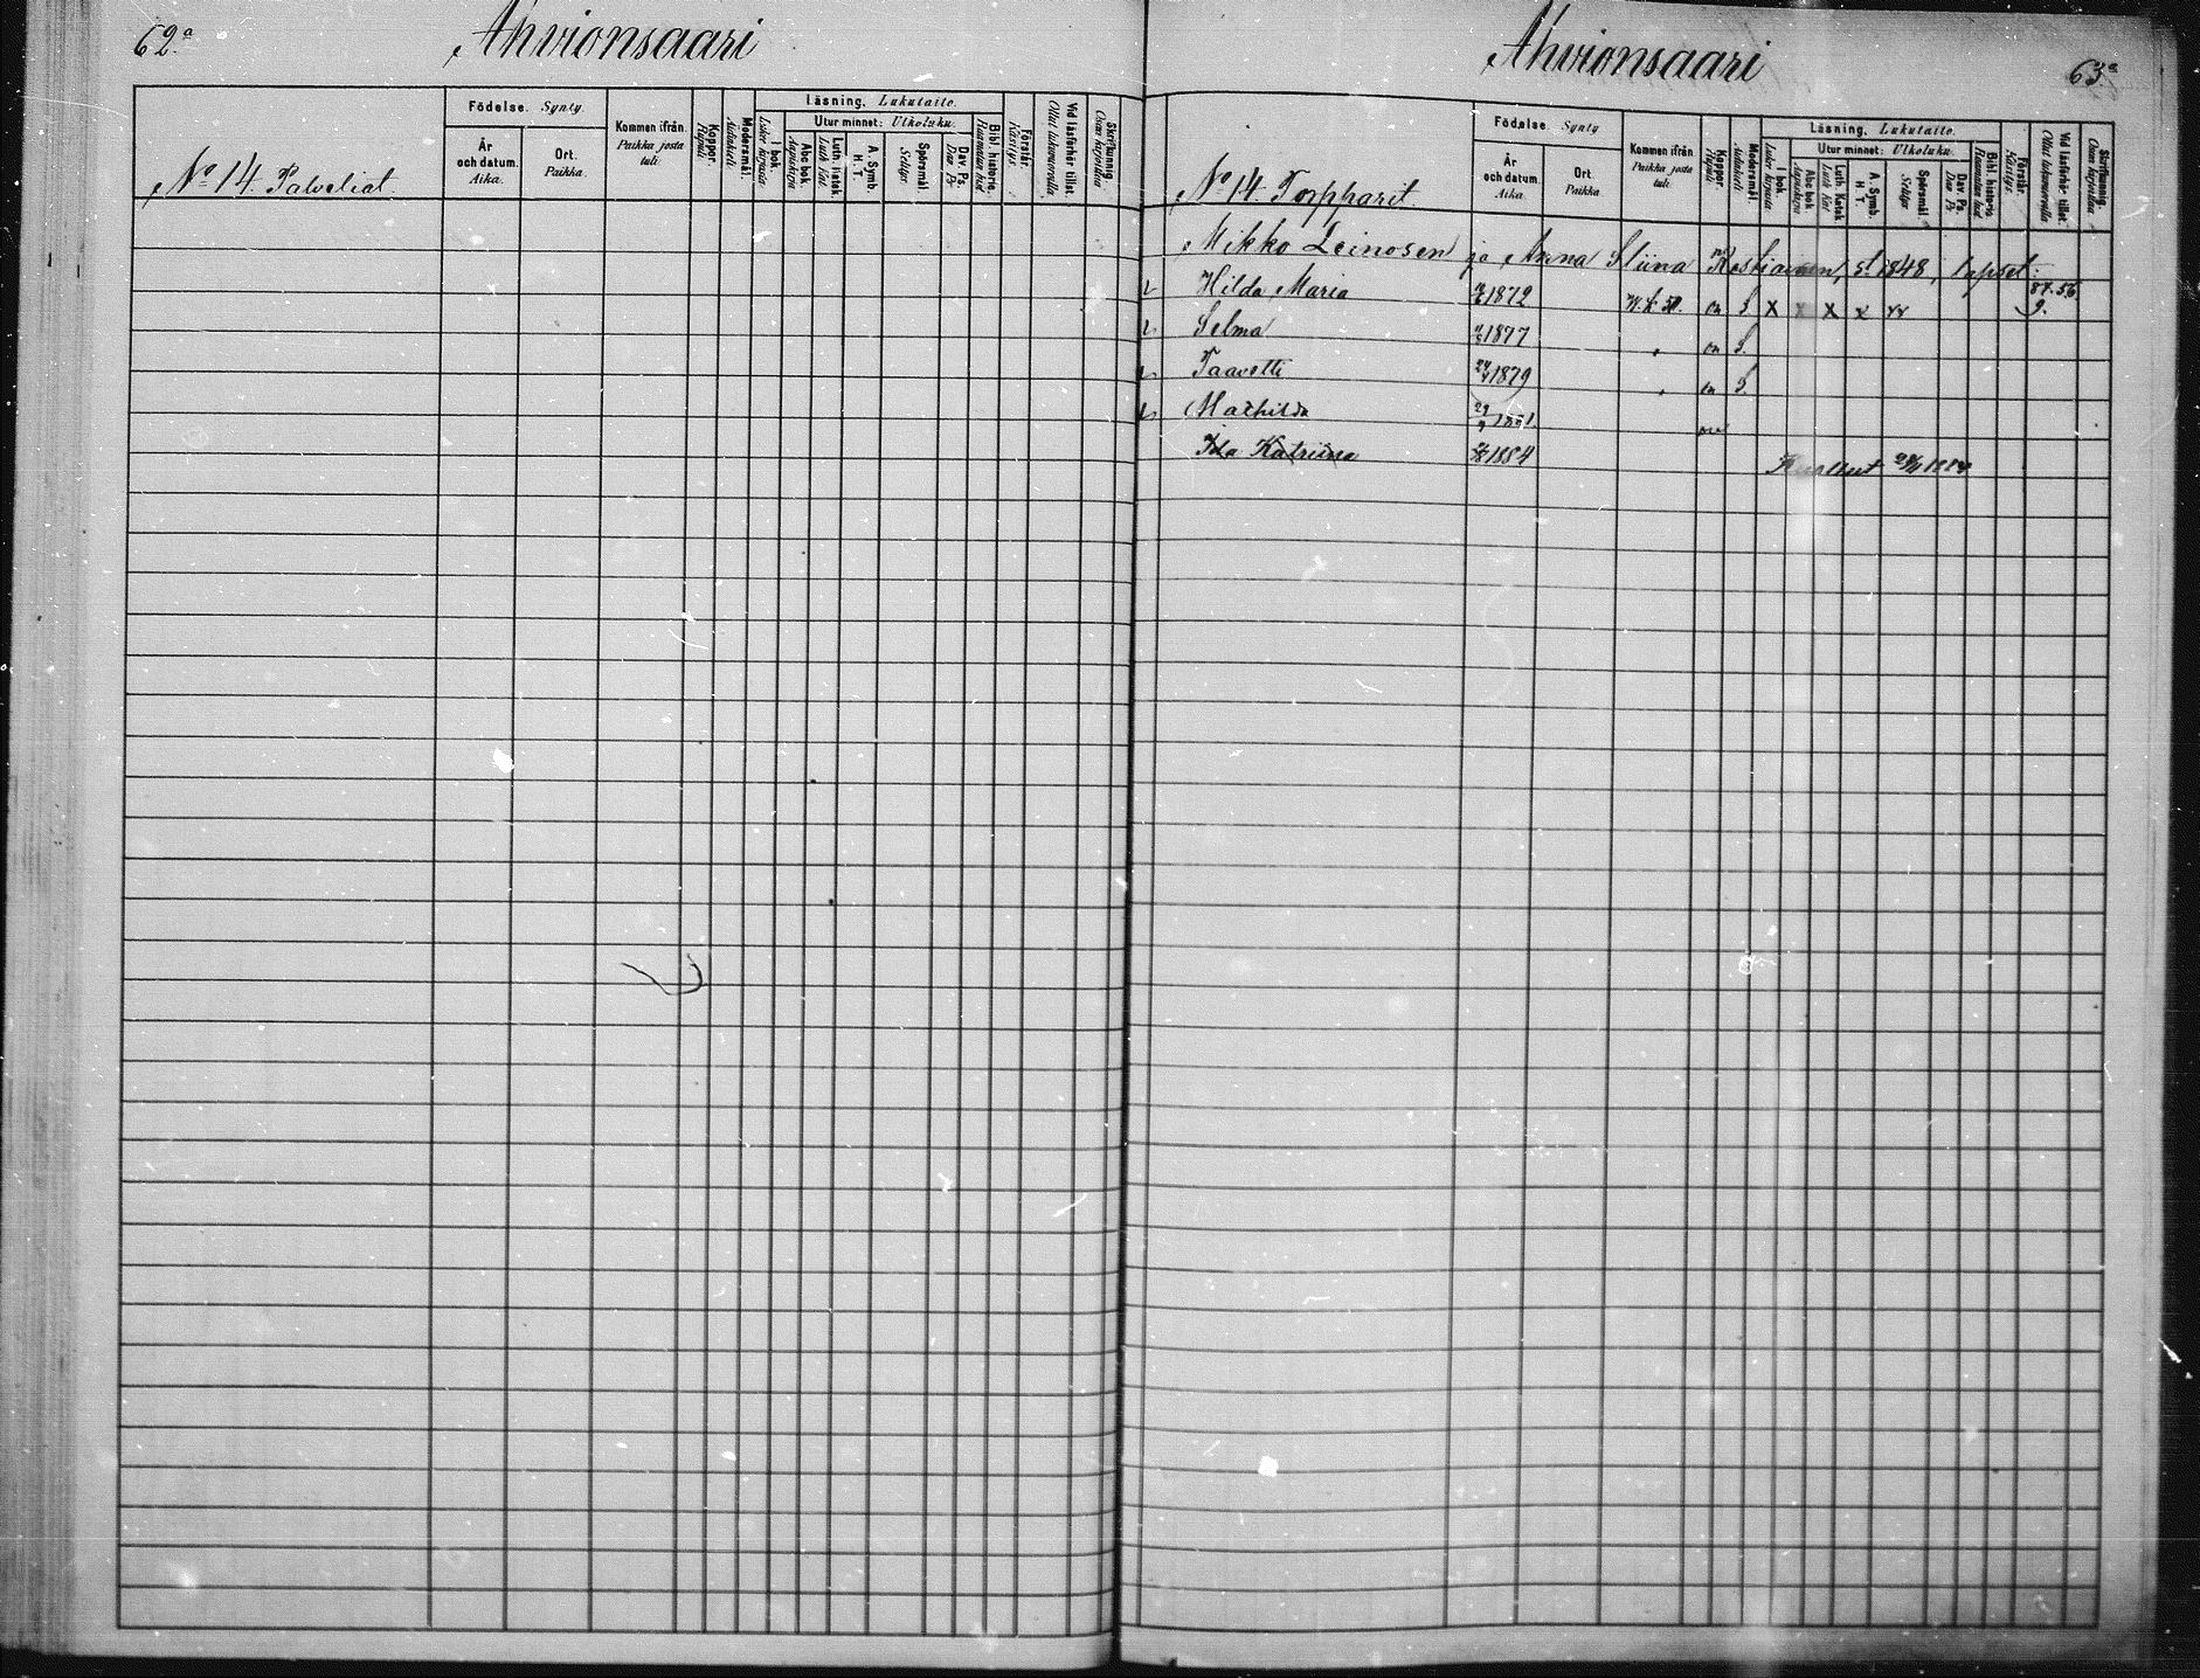 62.a Ahvionsaari
Födelse. Synty.
Läsning, Lukutaito.
Utur minnet: Ulkoluku.
År och datum. Aika.
Ort. Paikka.
Kommen ifrån. Paikka josta tuli.
Koppor. Rupuli
Modersmål. Äidinkieli
I bok. Lukee kirjasta
Abc bok Aapiskirja
Luth. Katek. Luth Kat.
A. Symb. H. T.
Spörsmål. Selitys.
Dav. Ps. Dav Ps
Bibl. historia. Raamatun hist.
Förstår. Käsitys.
Vid läsförhör tillst. Ollut lukuvuorolla.
Skrifkunnig. Osaa kirjoittaa
No 14. Palveliat.
Ahvionsaari 63.a
Födelse. Synty
Läsning, Lukutaito.
Utur minnet: Ulkoluku.
År och datum. Aika.
Ort. Paikka
Kommen ifrån Paikka josta tuli.
Koppor. Rupuli
Modersmål. Äidinkieli
I bok. Lukee kirjasta
Abc bok Aapiskirja
Luth. Katek. Luth Kat
A. Symb. H. T.
Spörsmål. Selitys
Dav. Ps. Dav Ps
Bibl. historia Raamatun hist.
Förstår. Käsitys.
Vid läsförhör tillst. Ollut lukuvuorolla
Skrifkunnig. Osaa kirjoittaa
No 14. Torpparit.
Mikko Leinosen ja Anna Stiina Kostiainen, st 1848, lapset:
Hilda Maria 1872 on S. x x x x 87. 56. 9.
Selma 1877 " on S.
Taavetti 1879 " on S.
Mathilda 29/9 1881. on
Ida Katriina 1884 Kuollut 1884